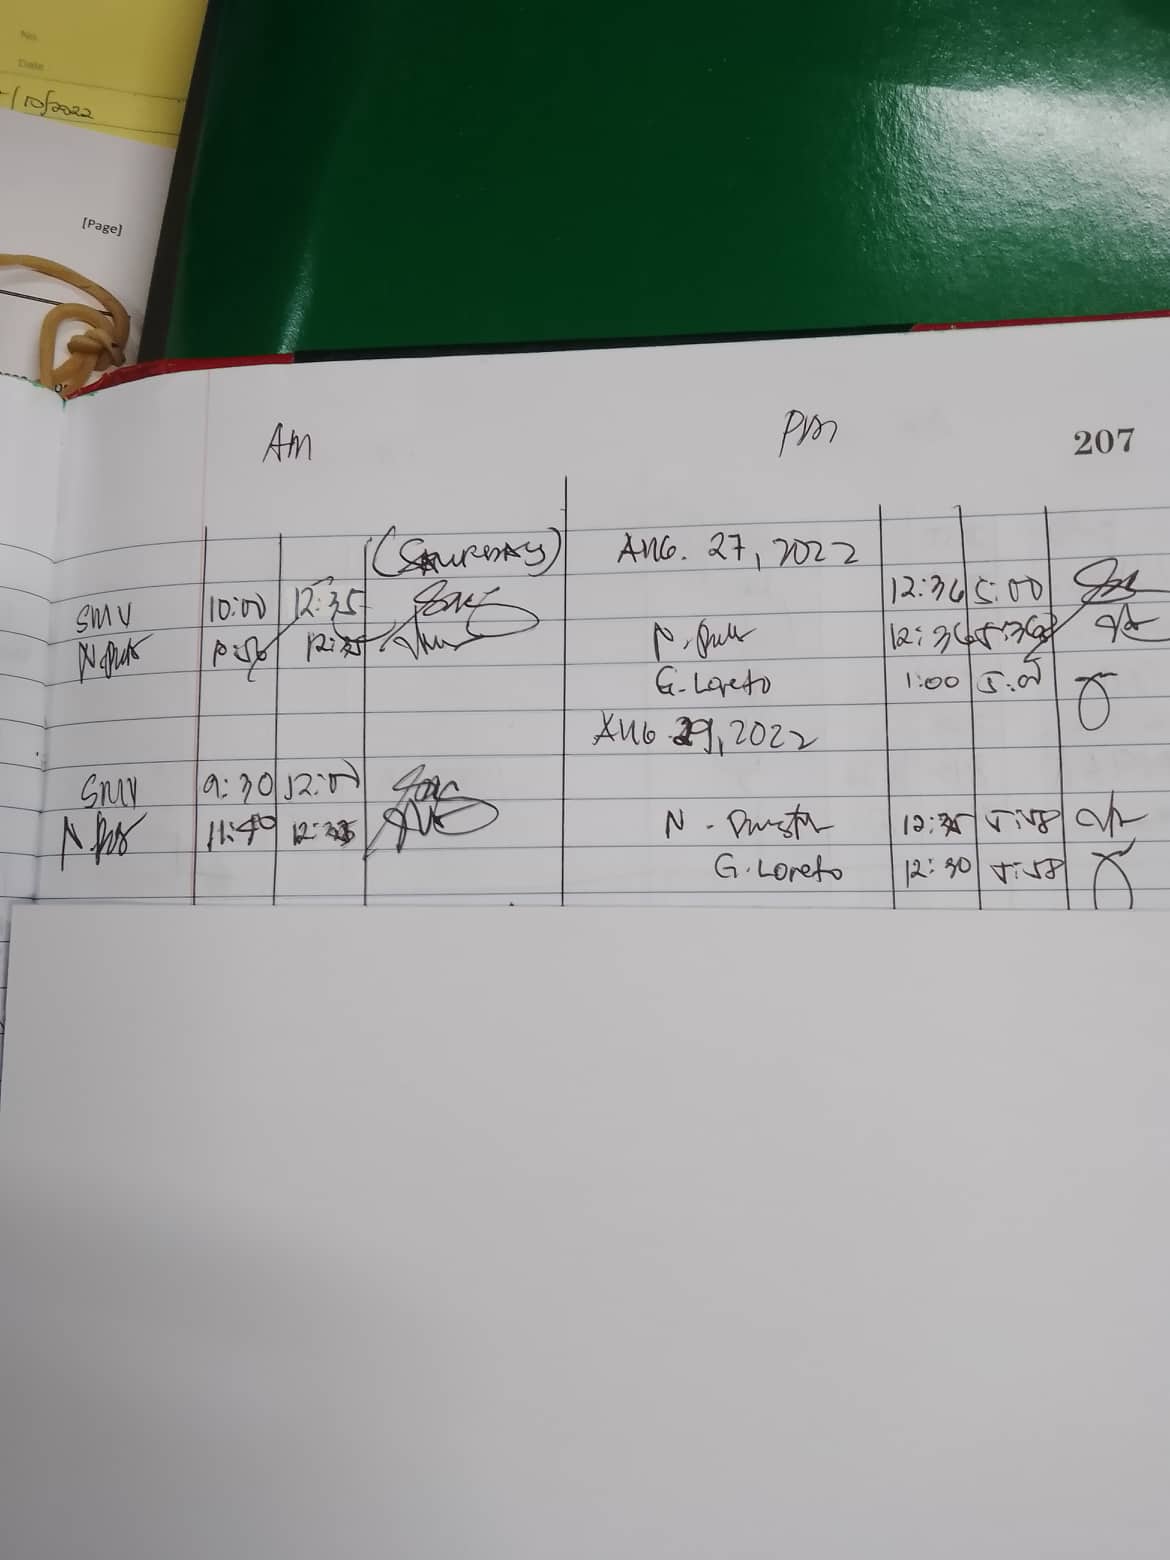 No.
Date
/10/2022
[Page]
AM PM 207
(SATURDAY) AUG. 27, 2022
SMV 10:00 12:35 12:36 5:00
N. 12:36
G. Loreto 1:00 5:05
AUG 29, 2022
SMV 9:30 12:00
N. 11:40 N. 12:35 5:58
G. Loreto 12:30 5:58